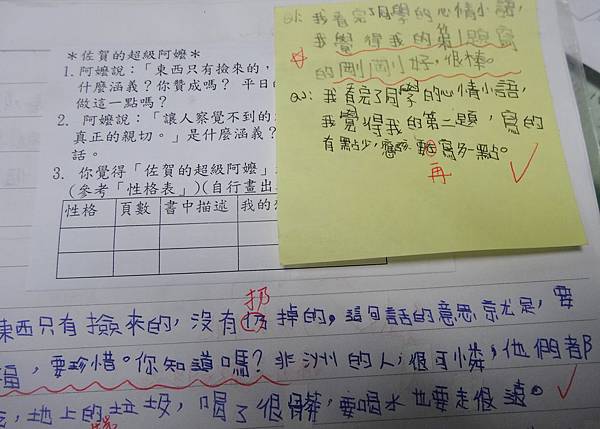 *佐賀的超級阿嬤*
1. 阿嬤說:「東西只有撿來的,
什麼涵義?你贊成嗎? 平日的
做這一點嗎?
2. 阿嬤說:「讓人察覺不到的
真正的親切。」是什麼涵義?
話。
3. 你覺得「佐賀的超級阿嬤」
(參考「性格表」)(自行畫出
性格 頁數 書中描述 我的
Q1:我看完了同學的心情小語,
我覺得我的第1題寫
的剛剛好,很棒。
Q2:我看完了同學的心情小語,
我覺得我的第二題,寫的
有點少,應該 要 寫多一點。
再
扔
東西只有撿來的,沒有 掉的。這句話的意思就是,要
福,要珍惜。你知道嗎?非洲的人,很可憐,他們都
,地上的垃圾,喝了很髒,要喝水也要走很遠。